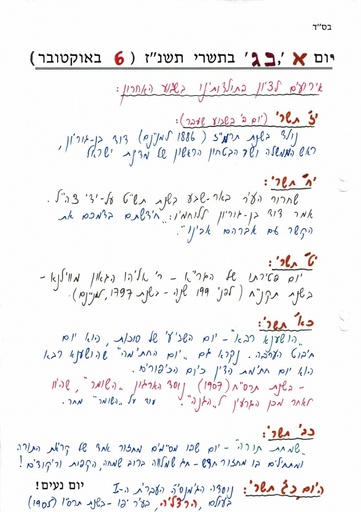 בס"ד
יום א', כג' בתשרי תשנ"ז ( 6 באוקטובר)
אירועים לציון בתולדותינו בשבוע האחרון:
יז' תשרי (יום ב' בשבוע שעבר):
נולד בשנת תרמ"ז (1886 למנינם) דוד בן-גוריון,
ראש הממשלה ושר הבטחון הראשון של מדינת ישראל
יח' תשרי:
שחרור העיר באר-שבע בשנת תש"ט על-ידי צה"ל.
אמר דוד בן-גוריון ללוחמיו: "חידשתם בדמכם את
הקשר עם אברהם אבינו".
יט' תשרי:
יום פטירתו של הגר"א - ר' אליהו הגאון מווילנא -
בשנת תקנ"ח (לפני 199 שנה - בשנת 1797 למנינם).
כא' תשרי:
"הושענא רבא" - יום השביעי של סוכות, הוא יום
חיבוט הערבה. נקרא גם "יום החתימה" שהושענא רבא
הוא יום חתימת הדין כיום הכיפורים.
- בשנת תרס"ח (1907) נוסד הארגון "השומר", שהיו
לאחר מכן הגרעין ל"הגנה". עוד על "השומר" מחר.
כב' תשרי:
"שמחת תורה" - יום שבו מסיימים מחזור אחד של קריאת התורה
ומתחילים בו מחזור חדש - חג שמלווה ברוב שמחה, הקפות וריקודים!
היום כג' תשרי: נוסדה הגימנסיה העברית ה-I יום נעים!
בעולם, הרצליה, בעיר יפו - בשנת תרס"ו (1905)